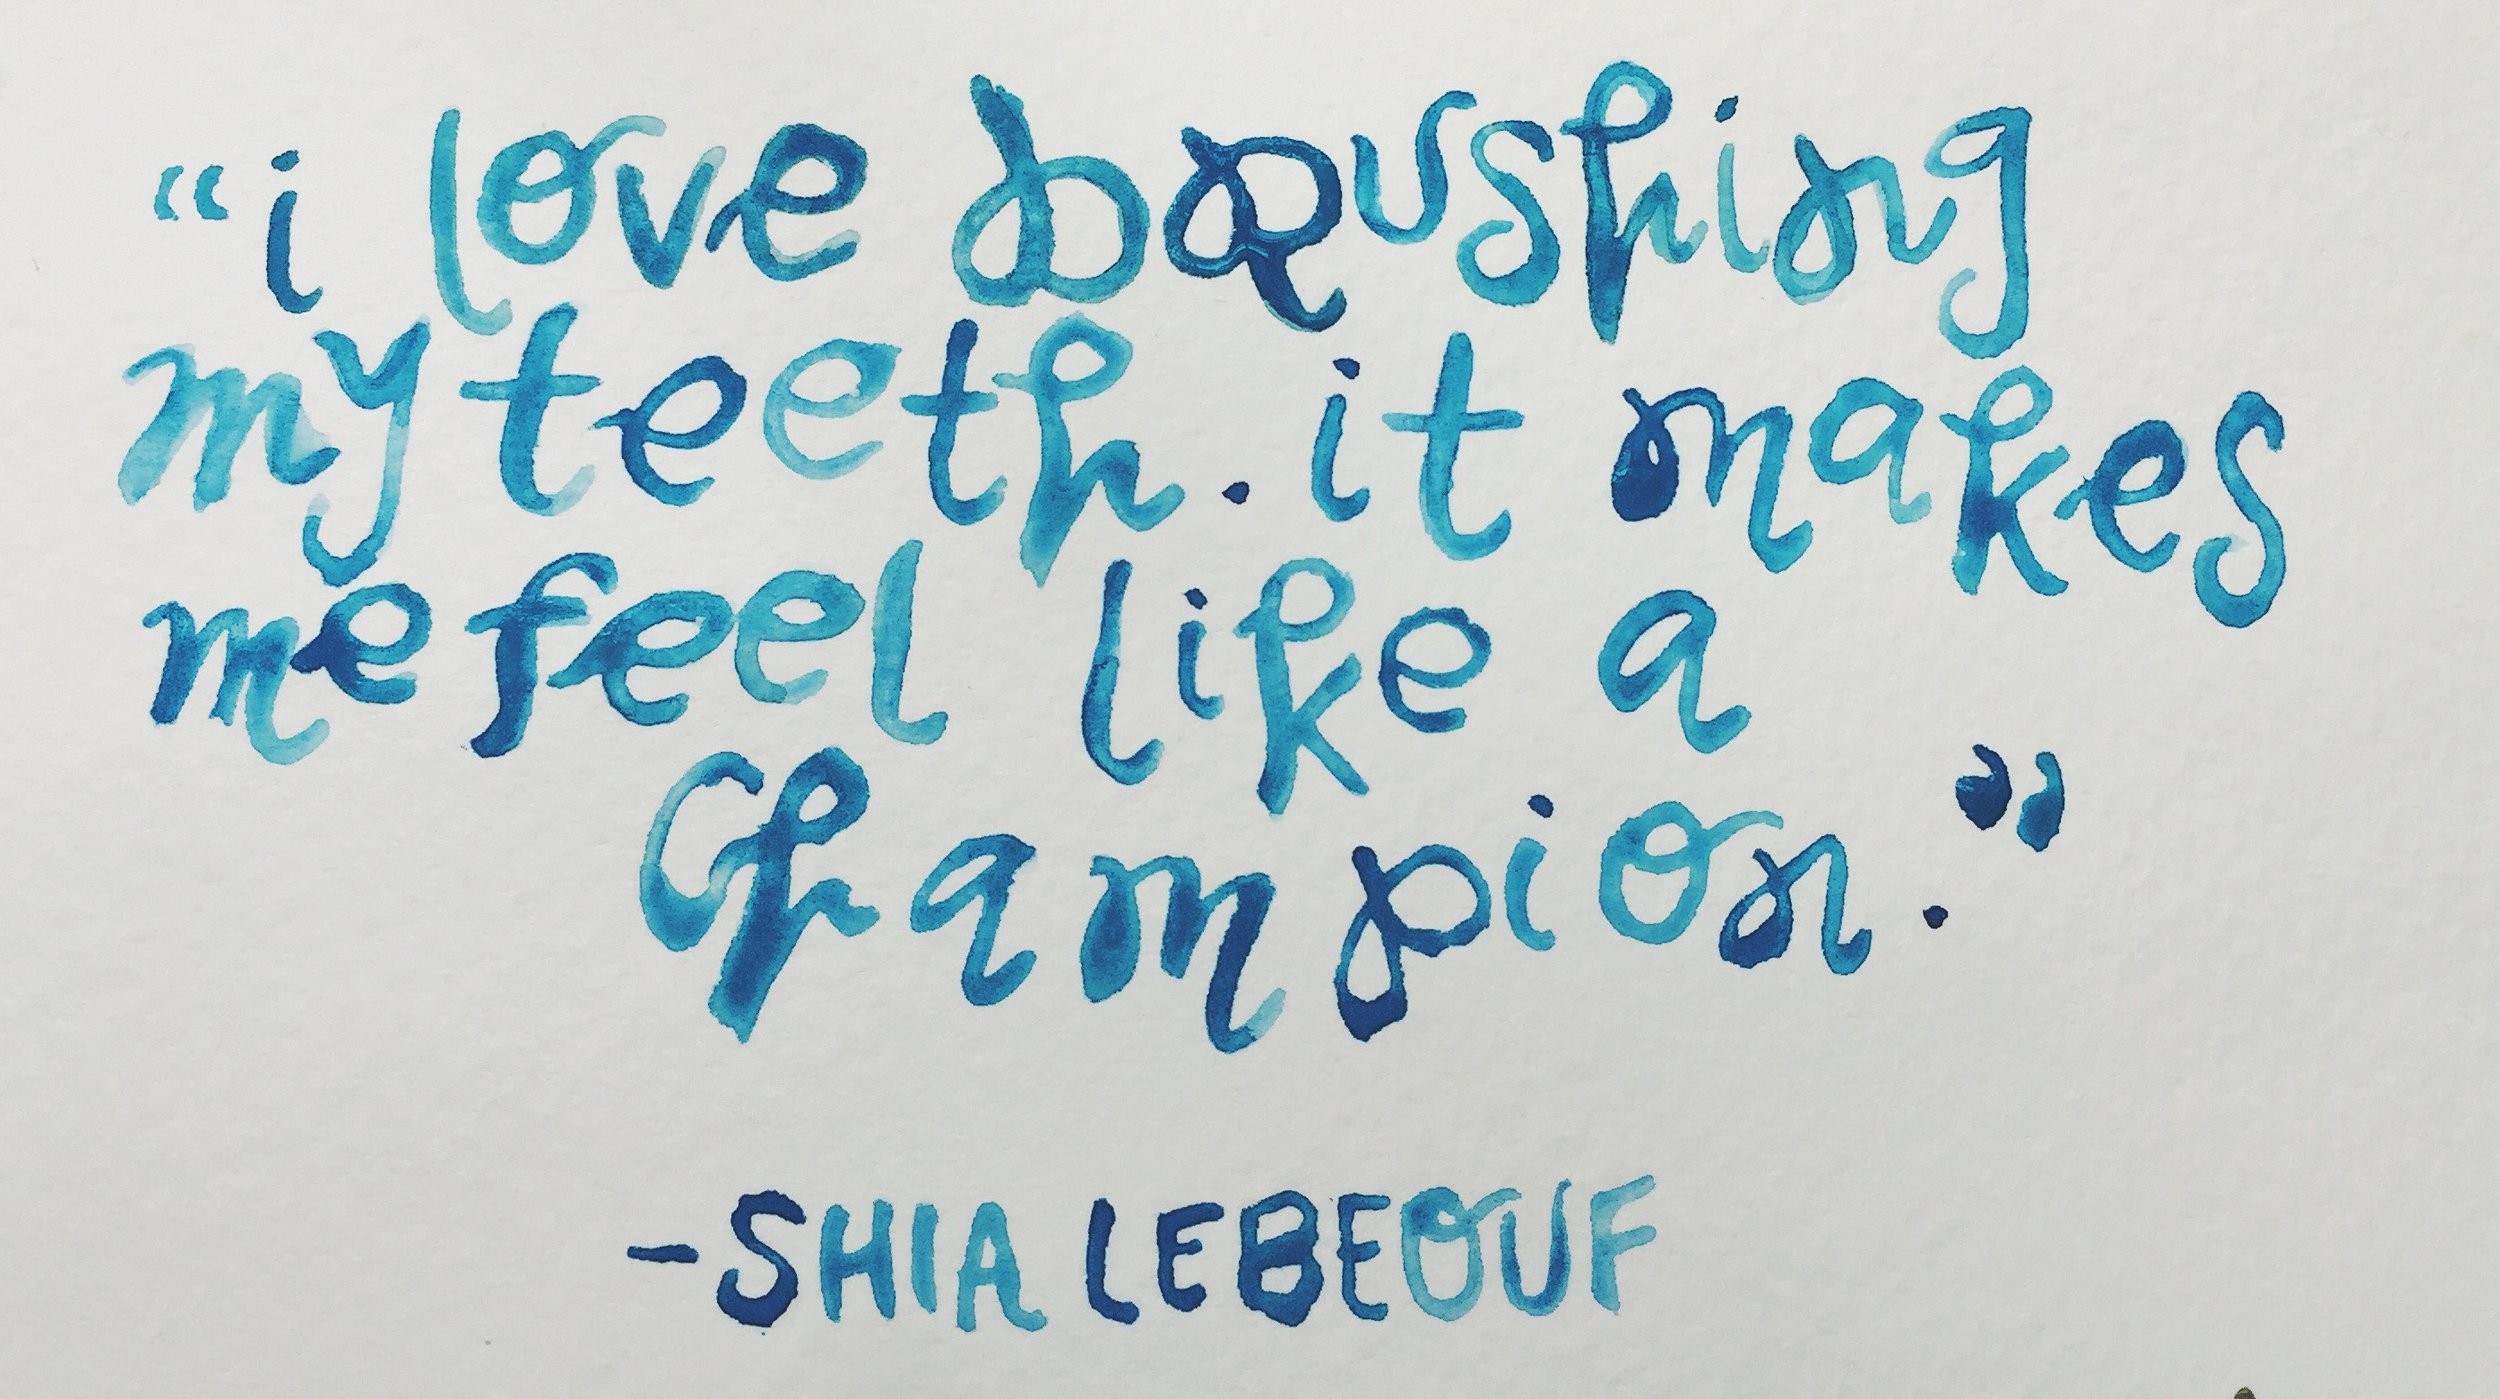 “i love brushing
my teeth. it makes
me feel like a
champion.”
-SHIA LEBEOUF